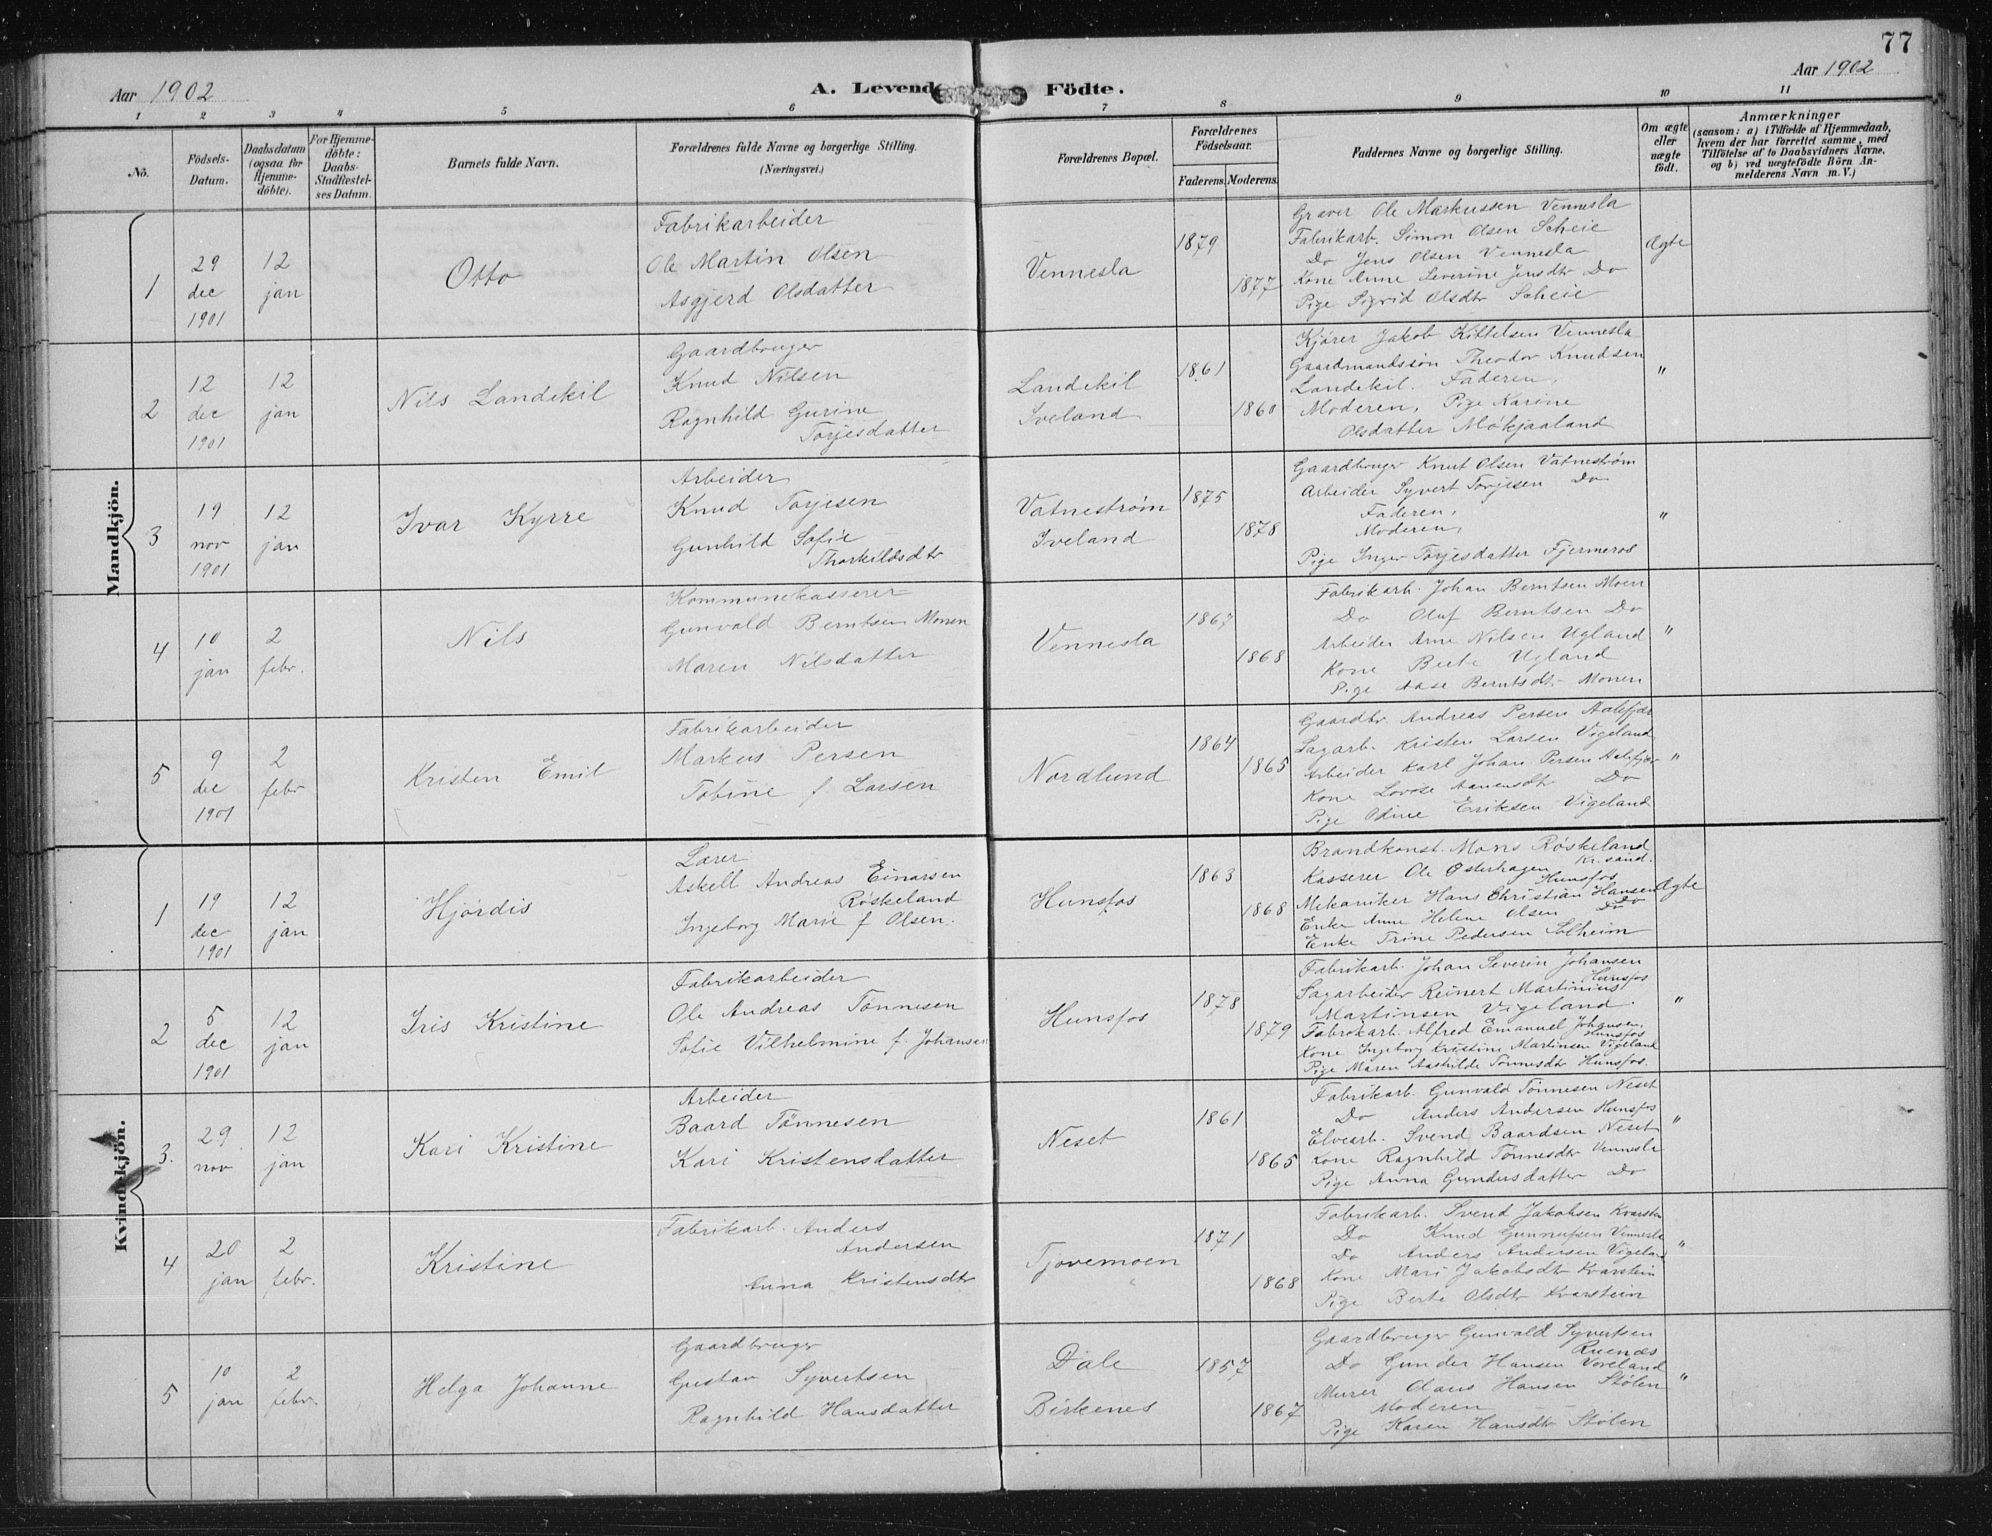 77
Aar 1902
A. Levende Födte.
Aar 1902
1 2 3 4 5 6 7 8 9 10 11
No.
Födsels-
Datum.
Daabsdatum
(ogsaa for
Hjemme-
döbte).
For Hjemme-
döbte:
Daabs-
Stadfæstel-
ses Datum.
Barnets fulde Navn.
Forældrenes fulde Navne og borgerlige Stilling.
(Næringsvei.)
Forældrenes Bopæl.
Forældrenes
Födselsaar.
Faderens. Moderens.
Faddernes Navne og borgerlige Stilling.
Om ægte
eller
uægte
födt.
Anmærkninger
(saasom: a) i Tilfælde af Hjemmedaab,
hvem der har forrettet samme, med
Tilföielse af to Daabsvidners Navne,
og b) ved uægtefödte Börn An-
melderens Navn m. V.)
Mandkjön.
1
29
dec
1901
12
jan
Otto
Fabrikarbeider
Ole Martin Olsen
Asgjerd Olsdatter
Vennesla
1879
1877
Graver Ole Markussen Vennesla
Fabrikarb. Simon Olsen Scheie
Do Jens Olsen Vennesla
Kone Anne Severine Jensdtr Do
Pige Sigrid Olsdtr Scheie
Ægte
2
12
dec
1901
12
jan
Nils Landekil
Gaardbruger
Knud Nilsen
Ragnhild Gurine
Torjesdatter
Landekil
Iveland
1861
1860
Kjører Jakob Kittelsen Vennesla
Gaardmandssøn Theodor Knudsen
Landekil. Faderen,
Moderen, Pige Karine
Olsdatter Møkjaaland
"
3
19
nov
1901
12
jan
Ivar Kyrre
Arbeider
Knud Torjesen
Gunhild Sofie
Thorkildsdtr
Vatnestrøm
Iveland
1875
1878
Gaardbruger Knut Olsen Vatnestrøm
Arbeider Syvert Torjesen Do
Faderen,
Moderen,
Pige Inger Torjesdatter Fjermeros
"
4
10
jan
2
febr.
Nils
Kommunekasserer
Gunvald Berntsen Moen
Maren Nilsdatter
Vennesla
1867
1868
Fabrikarb. Johan Berntsen Moen
Do Oluf Berntsen Do
Arbeider Arne Nilsen Ugland
Kone Berte Ugland
Pige Aase Berntsdtr Monen
"
5
9
dec
1901
2
febr
Kristen Emil
Fabrikarbeider
Markus Persen
Tobine f Larsen
Nordlund
1864
1865
Gaardbr. Andreas Persen Aalefjær
Sagarb. Kristen Larsen Vigeland
Arbeider Karl Johan Persen Aalefjær
Kone Lovise Aanensdtr Do
Pige Odine Eriksen Vigeland
"
Kvindekjön.
1
19
dec
1901
12
jan
Hjördis
Lærer
Askell Andreas Einarsen
Röskeland
Ingeborg Marie f Olsen.
Hunsfos
1863
1868
Brandkonst. Mons Röskeland
Kr.sand.
Kasserer Ole Østerhagen
Hunsfos
Mekaniker Hans Christian Hansen
Enke Anne Helene Olsen Do
Enke Trine Pedersen Solheim
Ægte
2
5
dec
1901
12
jan
Iris Kristine
Fabrikarbeider
Ole Andreas Tönnesen
Sofie Vilhelmine f. Johansen
Hunsfos
1878
1879
Fabrikarb. Johan Severin Johansen
Hunsfos
Sagarbeider Reinert Martinius
Martinsen Vigeland.
Fabrikarb. Alfred Emanuel Johansen,
Hunsfos
Kone Ingeborg Kristine Martinsen Vigeland
Pige Maren Aashilde Tönnesdtr Hunsfos.
"
3.
29
nov
12
jan
Kari Kristine
Arbeider
Baard Tönnesen
Kari Kristensdatter
Neset
1861
1865
Fabrikarb. Gunvald Tönnesen Neset
Do Anders Andersen Hunsfos
Elvearb. Svend Baardsen Neset
Kone Ragnhild Tönnesdtr Vennesla
Pige Anna Gundersdatter Do
"
4
20
jan
2
febr.
Kristine
Fabrikarb. Anders
Andersen
Anna Kristensdtr
Tjovemoen
1871
1868
Fabrikarb. Svend Jakobsen Kvarsten
Do Knud Gunnufsen Vennesla
Do Anders Andersen Vigeland
Kone Mari Jakobsdtr Kvarstein
Pige Berte Olsdtr Kvarstein
"
5
10
jan
2
febr.
Helga Johanne
Gaardbruger
Gustav Syvertsen
Ragnhild Hansdatter
Dale
Birkenes
1857
1867
Gaardbruger Gunvald Syvertsen
Ruenæs
Do Gunder Hansen Voreland
Murer Olaus Hansen Stölen
Moderen
Pige Karen Hansdtr Stölen
"